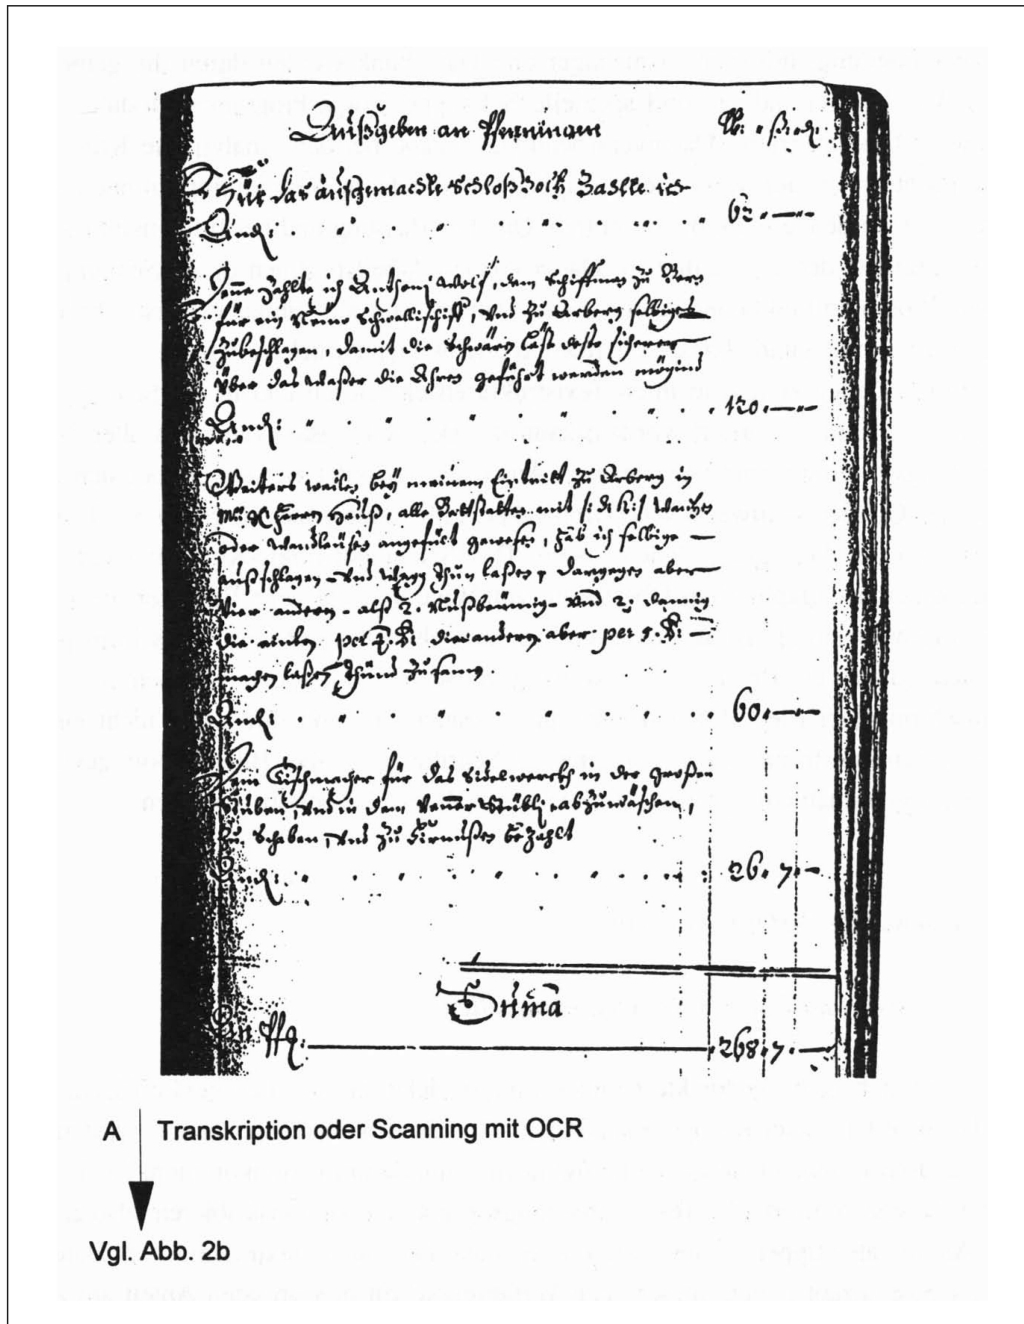 Außgeben an Pfenningen lb: ß: d:
Für das außgemachte Schloß Holtz zahlte ich
And: 62.—
Denne zahlte ich Anthonj Wolf, dem Schiffman zu
für ein Schiff, vnd zu Arberg selbiges
Zubeschlagen, damit die Schwäry last desto sicherer
über das Waßer die Ahren geführt werden mögind
And: 120.—
Weiters weilen bey meinem Eintritt zu Arberg in
Mgh Herren Hauß, alle Bettstatten mit
oder Wandleüsen angefült gewesen, hab ich selbige
außschlagen vnd wegg thun laßen, dargegen aber
Vier andere, alß 2. Nußbeümig vnd 2. dannig
die einten per die anderen aber per
machen laßen, thund zusamen
And: 60.—
Dem Tischmacher für das Sidelwerckh in der großen
Stuben, vnd in dem Venner Stübli, abzuwäschen,
zu Schaben, vnd zu Firnußen bezahlt
And: 26. 7.—
Summa
An Pfg. 268. 7.—
A Transkription oder Scanning mit OCR
Vgl. Abb. 2b